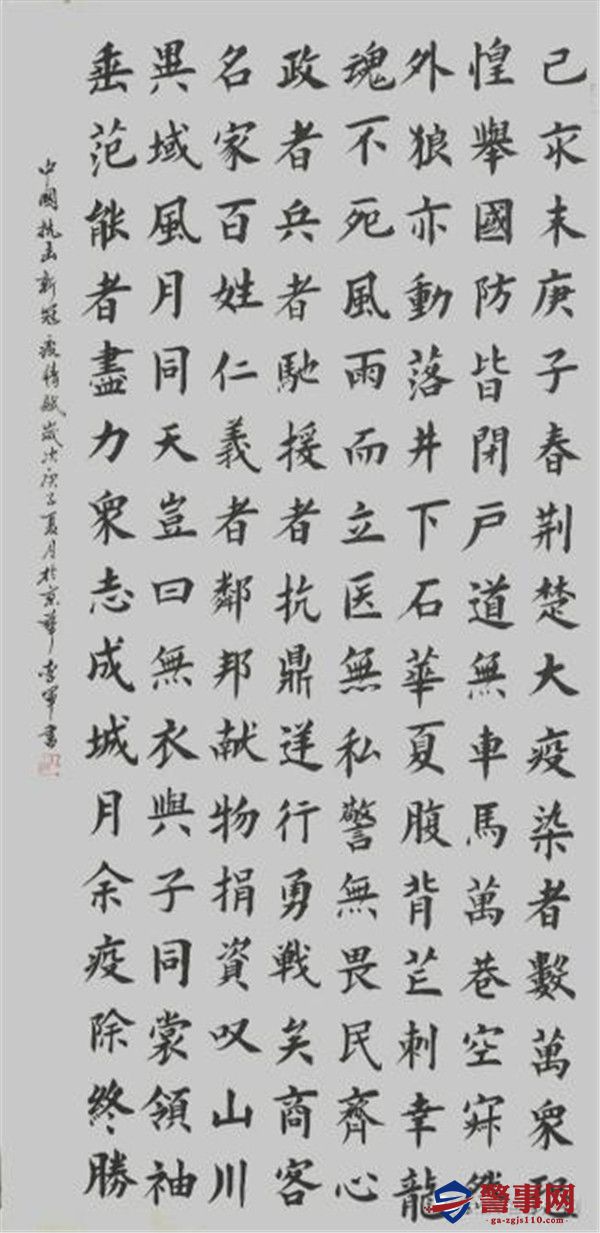 己亥末庚子春荆楚大疫染者數萬眾恐
惶舉國防皆閉戶道無車馬萬巷空寂
外狼亦動落井下石華夏腹背芒刺幸龍
魂不死風雨而立医無私警無畏民齊心
政者兵者馳援者抗鼎逆行勇戰矣商客
名家百姓仁義者鄰邦献物捐資叹山川
異域風月同天豈曰無衣與子同裳領袖
垂范能者盡力眾志成城月余疫除終勝
中國抗击新冠疫情赋歲次庚子夏月於京華李軍書
警事网
ga-zgjs110.com